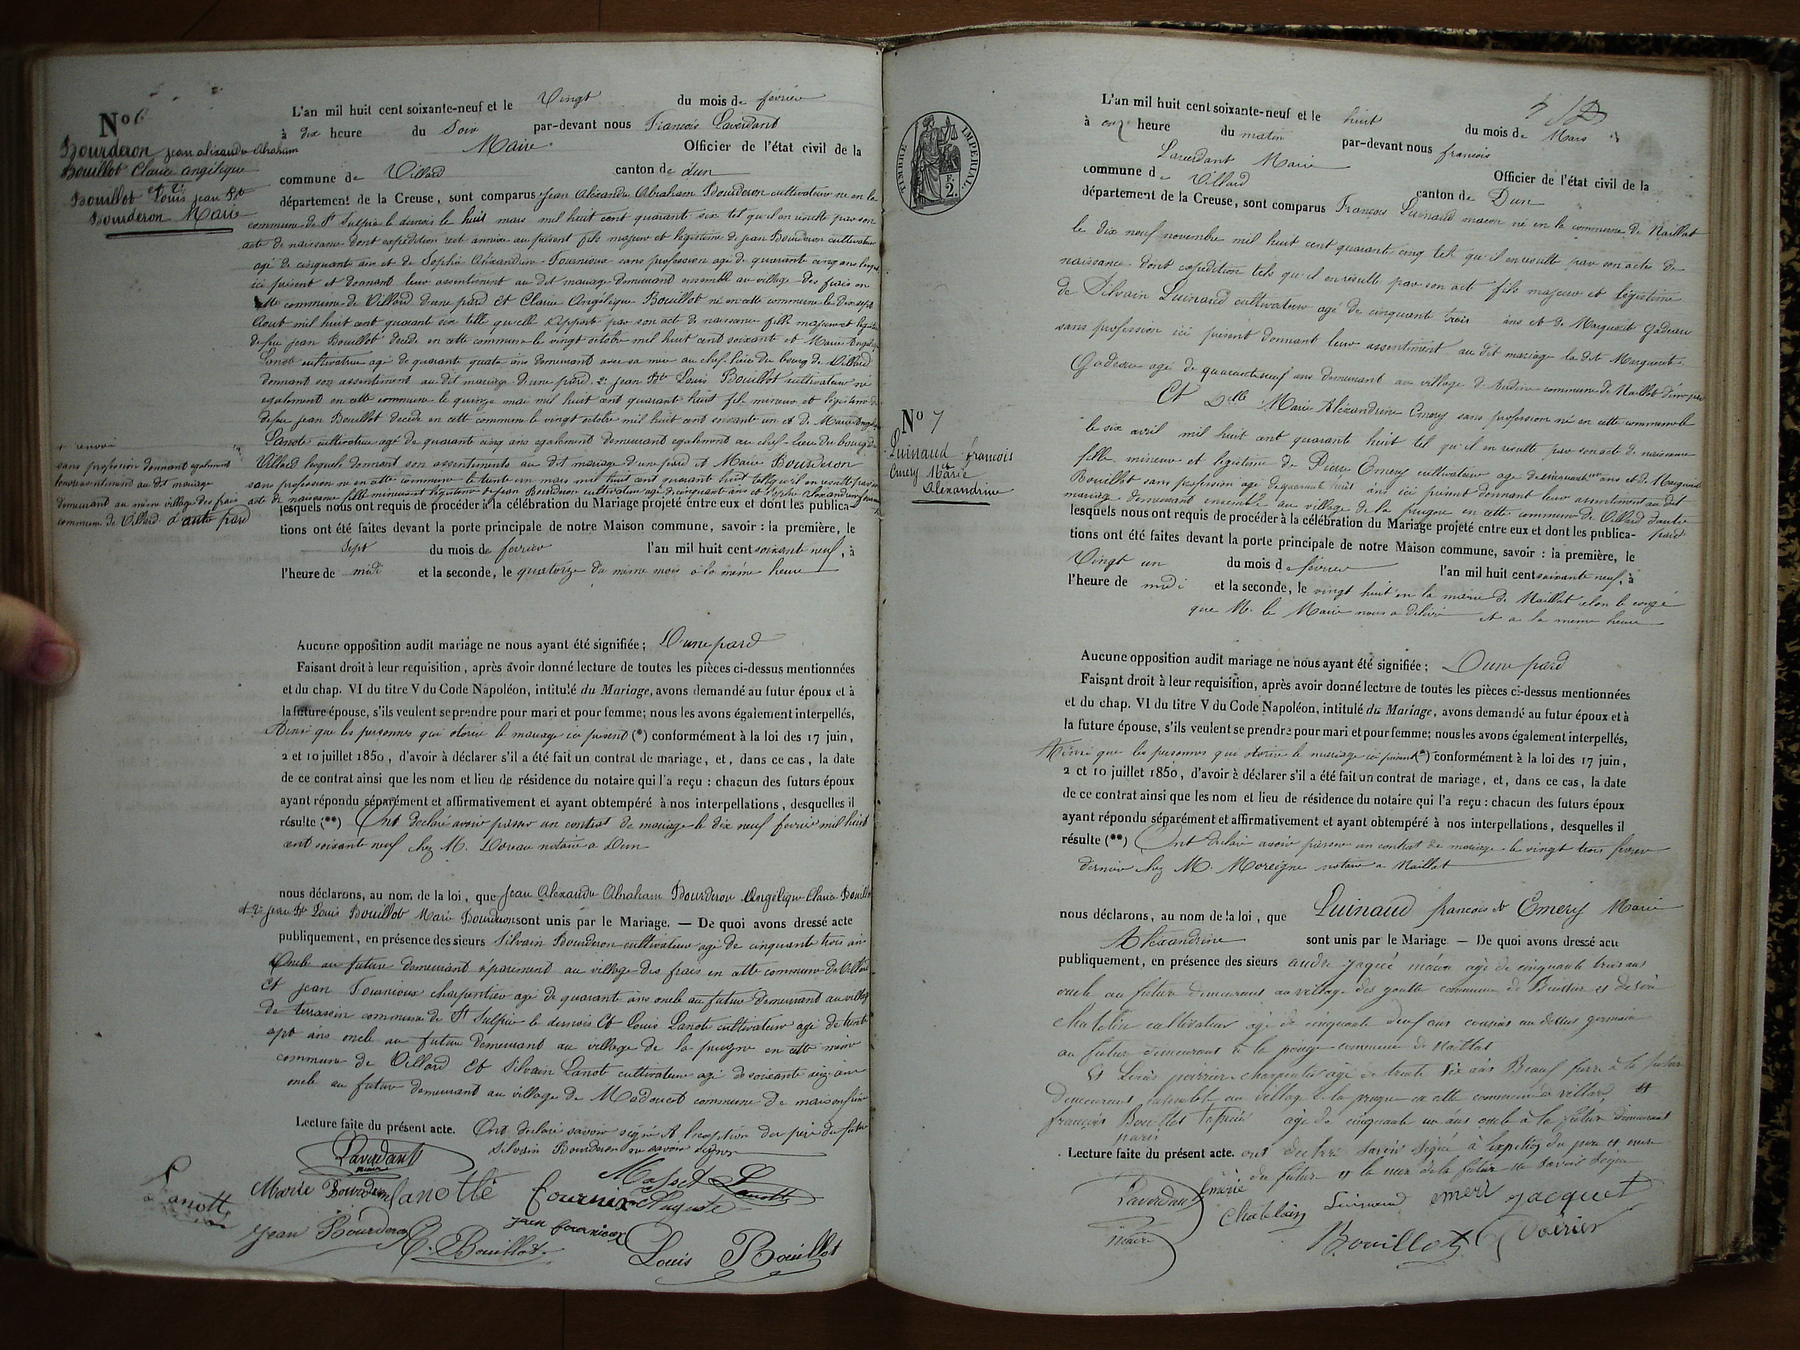 No 6
Bourderon jean alexandre Abraham
Bouillot Claire angélique
et 2°
Bouillot Louis jean Bte
Bourderon Marie
L'an mil huit cent soixante-neuf et le Vingt du mois de fevrier
à dix heure du Soir par-devant nous François Laverdant
Maire Officier de l'état civil de la
commune de Villard canton de dun
département de la Creuse, sont comparus jean Alexandre Abraham Bourderon cultivateur né en la
commune de St Sulpice le dunois le huit mars mil huit cent quarante six tel qu'il en résulte par son
acte de naissance dont expedition rest annéxée au présent fils majeur et légitime de jean Bourderon cultivateur
agé de cinquante ans et de Sophie Alexandrine Fournioux sans profession agé de quarante cinq ans
ici présent et donnant leur assentiment au dit mariage demeurant ensemble au village des frais en
cette commune de Villard d'une pard Et Claire Angélique Bouillot né en cette commune le dix sept
Aout mil huit cent quarante six telle qu'elle rapport par son act de naissance fille majeur et légitime
de feu jean Bouillot décédé en cette commune le vingt octobre mil huit cent soixante et Marie
Lanote cultivatrice agé de quarante quatre ans demeurant avec sa mère au chef lieu du bourg de Villard
donnant son assentiment au dit mariage d'une pard. 2° jean Bte Louis Bouillot cultivateur né
egalement en cette commune le quinze mai mil huit cent quarant huit fils mineur et légitime de
defeu jean Bouillot décédé en cette commune le vingt octobre mil huit cent soixante un et de Marie
Lanote cultivatrice agé de quarante cinq ans egalement demeurant egalement au chef-lieu du bourg de
Villard lequels donnant son assentiments au dit mariage d'une pard et Marie Bourderon
sans profession né en cette commune le trente un mars mil huit cent quarant huit tel que il en resulte par son
acte de naissance fille mineur et légitime de jean Bourderon cultivateur agé de cinquant ans et Sophie Alexandrine
+ renvoi
sans profession donnant egalement
leur assentiment au dit mariage
demeurant au même village des frais
commune de Villard d'autre pard
lesquels nous ont requis de procéder à la célébration du Mariage projeté entre eux et dont les publica-
tions ont été faites devant la porte principale de notre Maison commune, savoir : la première, le
Sept du mois de fevrier l'an mil huit cent soixant neuf, à
l'heure de midi et la seconde, le quatorze du même mois a la même heure
Aucune opposition audit mariage ne nous ayant été signifiée ; D'une pard
Faisant droit à leur requisition, après avoir donné lecture de toutes les pièces ci-dessus mentionnées
et du chap. VI du titre V du Code Napoléon, intitulé du Mariage, avons demandé au futur époux et à
la future épouse, s'ils veulent se prendre pour mari et pour femme; nous les avons également interpellés,
Ainsi que les personnes qui otorise le mariage ici present (*) conformément à la loi des 17 juin,
2 et 10 juillet 1850, d'avoir à déclarer s'il a été fait un contrat de mariage, et, dans ce cas, la date
de ce contrat ainsi que les nom et lieu de résidence du notaire qui l'a reçu : chacun des futurs époux
ayant répondu séparément et affirmativement et ayant obtempéré à nos interpellations, desquelles il
résulte (**) Ont declaré avoir passer un contrat de mariage le dix neuf fevrier mil huit
cent soixante neuf chez M. Loreau notaire a Dun
nous déclarons, au nom de la loi, que jean Alexandre Abraham Bourderon Angélique Claire Bouillot
et 2° jean Bte Louis Bouillot Marie Bourderon sont unis par le Mariage. — De quoi avons dressé acte
publiquement, en présence des sieurs Silvain Bourderon cultivateur agé de cinquante trois ans
Oncle au future demeurant séparément au village des frais en cette commune de Villard
Et jean Fournioux charpentier agé de quarante ans oncle au futur demeurant au village
de terrassin commune de St Sulpice le dunois Et Louis Lanote cultivateur agé de trente
sept ans oncle au futur demeurant au village de la prugne en cette meme
commune de Villard Et Silvain Lanote cultivateur agé de soixante cinq ans
oncle au future demeurant au village de Madoucet commune de maison feine
Lecture faite du présent acte. Ont declaré savoir signé A l'exception du père du futur
Silvain Bourderon ne savoir signer
Laverdant
maire
Lanotte
Marie Bourderon Lanotte Fournioux Masset Auguste Lanotte
Jean Bourderon C. Bouillot jean fournioux Louis Bouillot
TIMBRE IMPERIAL
F. 2.
L'an mil huit cent soixante-neuf et le huit du mois de Mars
à onze heure du matin par-devant nous françois
Laverdant Maire Officier de l'état civil de la
commune de Villard canton de Dun
département de la Creuse, sont comparus François Luinaud maçon né en la commune de Naillat
le dix neuf novembre mil huit cent quarante cinq tel qu'il en resulte par son actes de
naissance dont expedition tels qu'il en resulte par son act fils majeur et légitime
de Silvain Luinaud cultivateur agé de cinquant trois ans et de Marguerit Godeau
sans profession ici présent donnant leur assentiment au dit mariage la dite Marguerit
Godeau agé de quarant neuf ans demeurant au village de commune de Naillat d'une par
Et Delle Marie Alexandrine Emery sans profession né en cette commune le
le six avril mil huit cent quarante huit tel qu'il en resulte par son acte de naissance
fille mineur et légitime de Pierre Emery cultivateur agé de cinquant ans et de Marguerit
Bouillot sans profession agé de quarante huit ans ici présent donnant leur assentiment au dit
mariage demeurant ensemble au village de la prugne en cette commune de Villard d'autre
No 7
Luinaud francois
et
Emery Marie
Alexandrine
lesquels nous ont requis de procéder à la célébration du Mariage projeté entre eux et dont les publica- pard
tions ont été faites devant la porte principale de notre Maison commune, savoir : la première, le
Vingt un du mois de fevrier l'an mil huit cent soixante neuf, à
l'heure de midi et la seconde, le vingt huit en la mairie de Naillat selon le congé
que M. le Maire nous a délivré et a la meme heure
Aucune opposition audit mariage ne nous ayant été signifiée ; D'une pard
Faisant droit à leur requisition, après avoir donné lecture de toutes les pièces ci-dessus mentionnées
et du chap. VI du titre V du Code Napoléon, intitulé du Mariage, avons demandé au futur époux et à
la future épouse, s'ils veulent se prendre pour mari et pour femme; nous les avons également interpellés,
Ainsi que les personnes qui otorise le mariage ici présent (*) conformément à la loi des 17 juin,
2 et 10 juillet 1850, d'avoir à déclarer s'il a été fait un contrat de mariage, et, dans ce cas, la date
de ce contrat ainsi que les nom et lieu de résidence du notaire qui l'a reçu : chacun des futurs époux
ayant répondu séparément et affirmativement et ayant obtempéré à nos interpellations, desquelles il
résulte (**) Ont declaré avoir passer un contrat de mariage le vingt trois fevrier
dernier chez M. Moreigne notaire a Naillat
nous déclarons, au nom de la loi, que Luinaud françois et Emery Marie
Alexandrine sont unis par le Mariage. — De quoi avons dressé acte
publiquement, en présence des sieurs andré jaquet maçon agé de cinquante trois ans
oncle au futur demeurant au village des goutte commune de Bussière et
chatelin cultivateur agé de cinquante neuf ans cousin au dessus germain
au futur demeurant à la pouge commune de Naillat
Et Louis poirier charpentier agé de trente six ans Beauf frere à la future
demeurant ensemble au village de la prugne en cette commune de villard et
françois Bouillot agé de cinquante un ans oncle à la futur demeurant
paris
Lecture faite du présent acte. ont declaré savoir signé à l'exeption du pere et mere
du futur et la mere de la futur ne savoir signer
Laverdant
maire
Emerie Chatelain Luinaud emeri jacquet
Bouillot Poirier